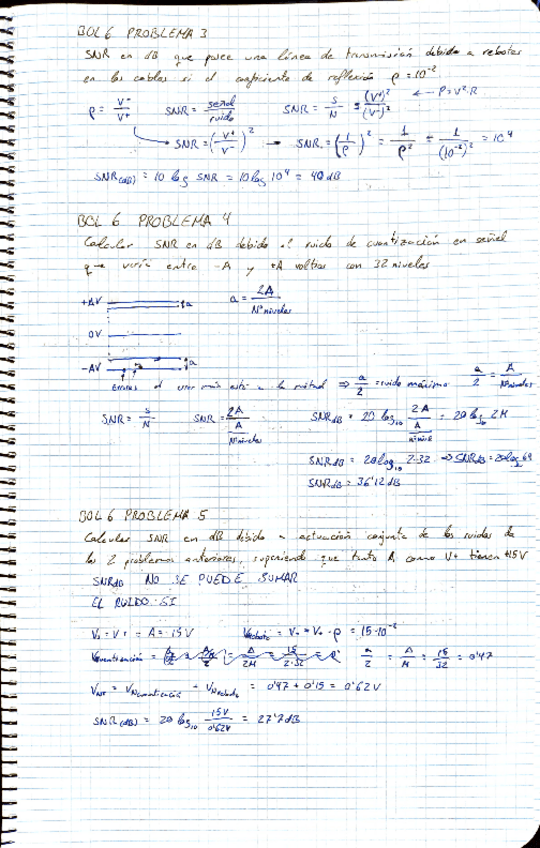 BOL 6 PROBLEMA 3
SNR en dB que parece una línea de transmisión debido a rebotes
en los cables si el coeficiente de reflexión ρ = 10⁻²
ρ = V⁻/V⁺ SNR = señal/ruido SNR = S/N = (V⁺)²/(V⁻)² ← P = V²·R
SNR = (V⁺/V⁻)² → SNR = (1/ρ)² = 1/ρ² = 1/(10⁻²)² = 10⁴
SNR(dB) = 10 log SNR = 10 log 10⁴ = 40 dB
BOL 6 PROBLEMA 4
Calcular SNR en dB debido al ruido de cuantización en señal
que varía entre -A y +A voltios con 32 niveles
+AV a a = 2A/Nº niveles
0V
-AV a
errores el error más está a la mitad ⇒ a/2 = ruido máximo a/2 = A/Nº niveles
SNR = S/N SNR = 2A/(A/Nº niveles) SNR dB = 20 log₁₀ 2A/(A/Nº niveles) = 20 log₁₀ 2M
SNR dB = 20 log₁₀ 2·32 ⇒ SNR dB = 20 log 64
SNR dB = 36'12 dB
BOL 6 PROBLEMA 5
Calcular SNR en dB debido a actuación conjunta de los ruidos de
los 2 problemas anteriores, suponiendo que tanto A como V+ tienen 15V
SNR dB NO SE PUEDE SUMAR
EL RUIDO SI
V₊ = A = 15V V rebote = V₋ = V₊ · ρ = 15·10⁻²
V cuantización = a/2 = A/M = 15/32 = 0'47
V NT = V N cuantización + V N rebote = 0'47 + 0'15 = 0'62V
SNR (dB) = 20 log₁₀ 15V/0'62V = 27'7 dB